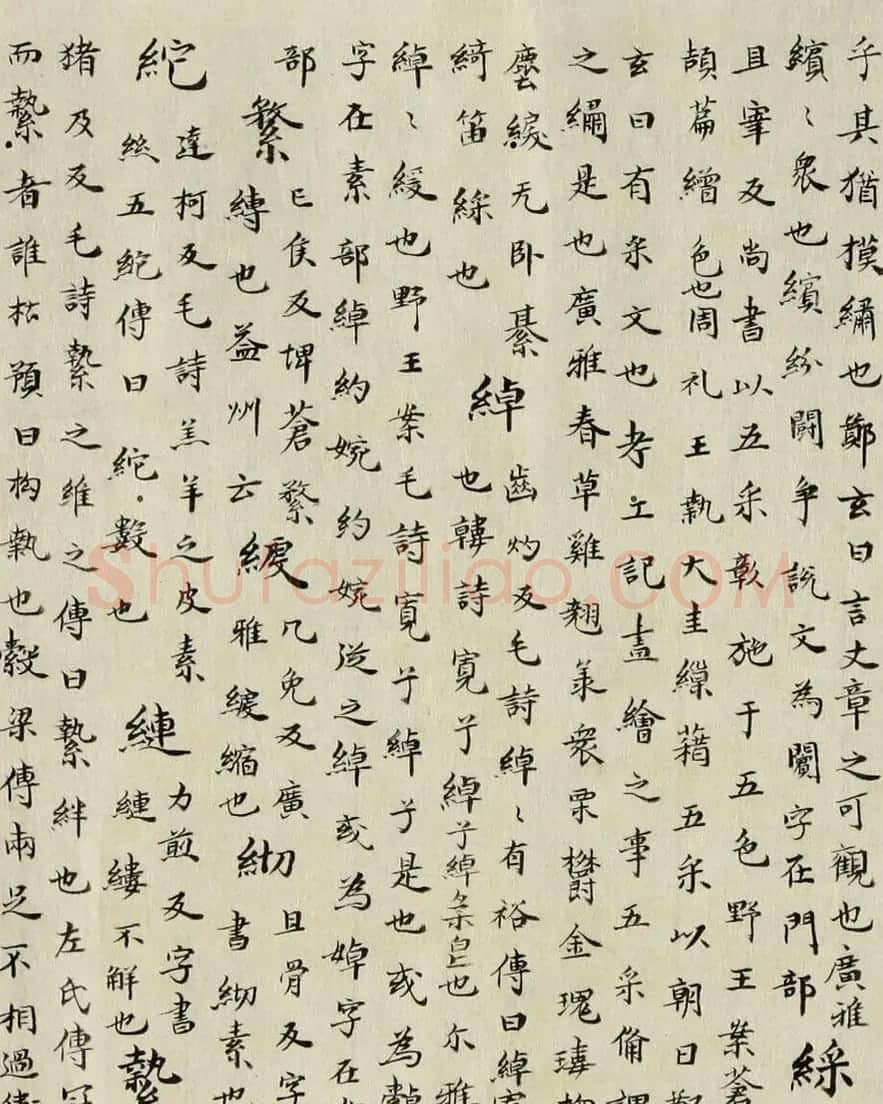 乎其猶摸繡也鄭玄曰言丈章之可觀也廣雅
繽〻衆也繽紛闘爭說文為闠字在門部綵
且宰反尚書以五采彰施于五色野王案蒼
頡篇繒色也周礼王執大圭繅藉五采以朝日鄭
玄曰有采文也考工記畫繪之事五采俻謂
之繡是也廣雅春草雞翹羕衆栗欝金瑰
塵綟无卧綦
綺笛綵也
綽
齒灼反毛詩綽〻有裕傳曰綽寛
也韓詩寛兮綽兮綽皃也尔雅
綽〻緩也野王案毛詩寛兮綽兮是也或為
字在素部綽約婉約婉逆之綽或為婥字在
部
繁
侯反埤蒼繁
縳也益州云
几免反廣
雅緩縮也
且骨反字
書紉素也
紽
達柯反毛詩羔羊之皮素
絲五紽傳曰紽數也
縺
力煎反字書
縺縷不解也
縶
猪及反毛詩縶之維之傳曰縶絆也左氏傳
而縶者誰杜預曰拘執也穀梁傳兩足不相過
Shufaziliao.COM